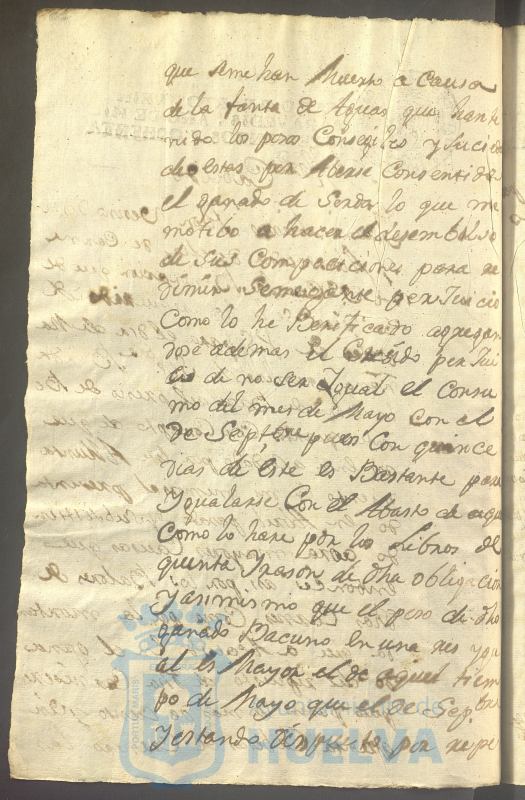 que se me han Muerto a causa
de la fanta de Aguas que han te
nido los posos Consegiles y sucie
de estos por Aberse Consentido
el ganado de Serda lo que me
motibo a hacer el desembolso
de sus Composiciones para re
dimir Semejante perJuicio
Como lo he Berificado agregan
dose ademas el perJui
cio de no ser Igual el Consu
mo del mes de Mayo con el
de Septre pues Con quince
dias de este es Bastante para
Ygualarse Con el Abasto de aquel
Como lo hare por los Libros de
quenta Yrason de dha obligacion
Y asimismo que el peso de dho
ganado Bacuno en una res
al es Mayor el de aquel tiem
po de Mayo que el de Sepbre
Y estando por
HUELVA
PORTUS MARIS